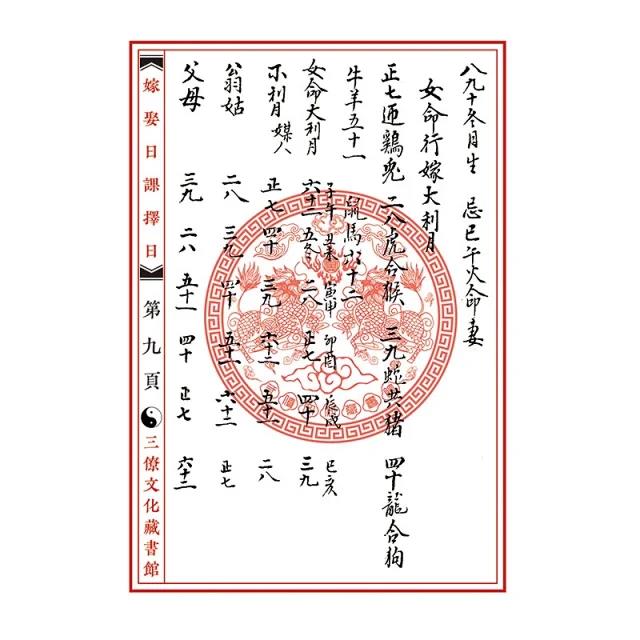 八九十冬月生 忌巳午火命妻
女命行嫁大利月
正七迎鷄兎 二八虎合猴 三九蛇共猪 四十龍合狗
牛羊五十一 鼠馬六十二
子午 丑未 寅申 卯酉 辰戌 巳亥
女命大利月 六十二 五冬 二八 正七 四十 三九
不利月 媒人 正七 四十 三九 六十二 五十一 二八
翁姑 二八 三九 四十 五十一 六十二 正七
父母 三九 二八 五十一 四十 正七 六十二
嫁娶日課擇日 第九頁 三僚文化藏書館